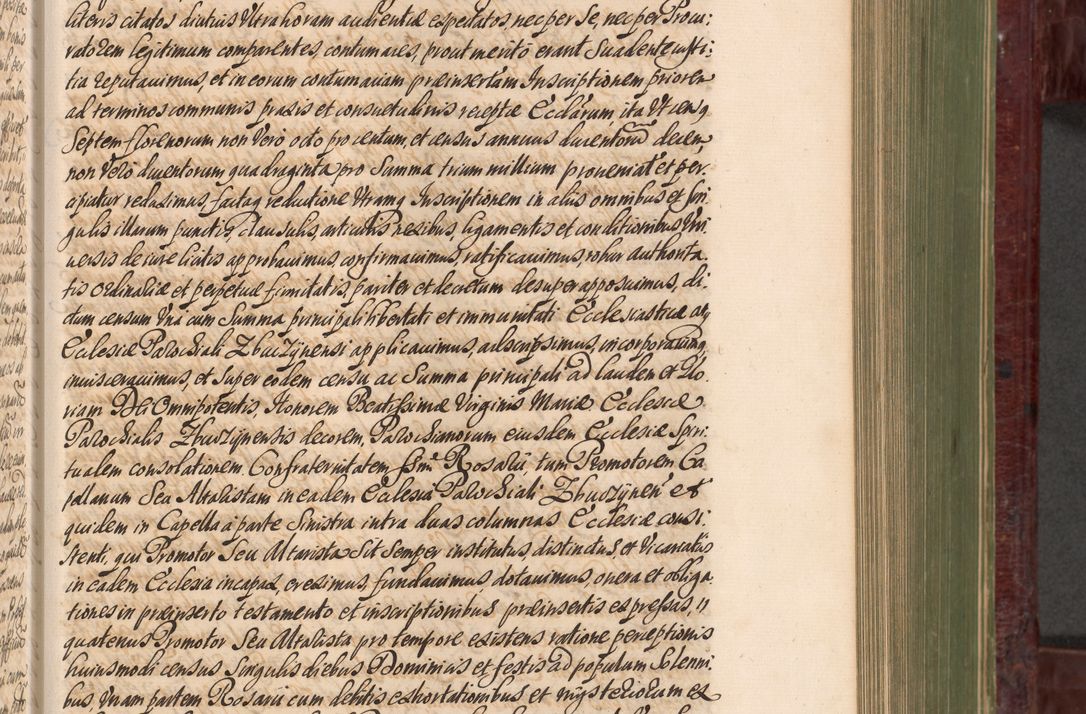 literis citatos diutius Ultra horam audientiæ expectatos, nec per Se, nec per Procu:
ratorem legitimum comparentes, contumaces, prout merito erant Suadente iusti:
tia reputavimus, et in eorum contumaciam præinsertam Inscriptionem priorem
ad terminos communis praxis et consuetudinis receptæ Ecclārum, ita Ut census
Septem florenorum non Vero octo pro centum, et census annuus ducentorum decem
non Vero ducentorum quadraginta pro Summa trium millium proveniat et per:
cipiatur reduximus, factaq reductione Utramq Inscriptionem in aliis omnibus et Sin:
gulis illarum punctis, Clausulis, articulis nexibus, ligamentis et conditionibus Uni:
uersis de iure licitis approbavimus, confirmavimus, ratificavimus, robur authorita
tis Ordinariæ et perpetuæ firmitatis, pariter et decretum desuper apposuimus, di:
ctum censum Unà cum Summa principali libertati et immunitati Ecclesiasticæ atq
Ecclesiæ Parochiali Zbuczynensi applicavimus, adscripsimus, incorporavimq,
inuisceravimus, et Super eodem censu ac Summa principali ad laudem et Glo:
riam Dei Omnipotentis, Honorem Beatissimæ Virginis Mariæ Ecclesiæ
Parochialis Zbuczynensis decorem, Parochianorum eiusdem Ecclesiæ Spiri:
tualem consolationem Confraternitatem SSm̄i Rosarii, tum Promotorem Ca
pellanum Seu Altaristam in eadem Ecclesia Parochiali Zbuczynen̄ et
quidem in Capella à parte Sinistra intra duas columnas Ecclesiæ consi:
stenti, qui Promotor Seu Altarista Sit Semper institutus, distinctus, et Vicariatûs
in eadem Ecclesia incapax, ereximus, fundavimus, dotavimus, onera et obliga:
tiones in præinserto testamento et inscriptionibus præinsertis expressas,
quatenus Promotor Seu Altarista pro tempore existens ratione perceptionis
huiusmodi census Singulis diebus Dominicis et festis ad populum Solenni:
bus Unam partem Rosarii cum debitis exhortationibus et mysteriorum ex